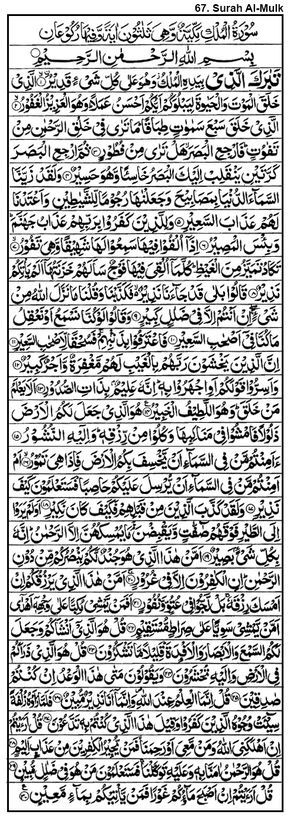 67. Surah Al-Mulk
سورة الملك مكية وهي ثلثون اية وفيها ركوعان
بسم الله الرحمن الرحيم
تبرك الذي بيده الملك وهو على كل شيء قدير الذي
خلق الموت والحيوة ليبلوكم ايكم احسن عملا وهو العزيز الغفور
الذي خلق سبع سموت طباقا ما ترى في خلق الرحمن من
تفوت فارجع البصر هل ترى من فطور ثم ارجع البصر
كرتين ينقلب اليك البصر خاسئا وهو حسير ولقد زينا
السماء الدنيا بمصابيح وجعلنها رجوما للشيطين واعتدنا
لهم عذاب السعير وللذين كفروا بربهم عذاب جهنم
وبئس المصير اذا القوا فيها سمعوا لها شهيقا وهي تفور
تكاد تميز من الغيظ كلما القي فيها فوج سالهم خزنتها الم ياتكم
نذير قالوا بلى قد جاءنا نذير فكذبنا وقلنا ما نزل الله من
شيء ان انتم الا في ضلل كبير وقالوا لو كنا نسمع او نعقل
ما كنا في اصحب السعير فاعترفوا بذنبهم فسحقا لاصحب السعير
ان الذين يخشون ربهم بالغيب لهم مغفرة واجر كبير
واسروا قولكم او اجهروا به انه عليم بذات الصدور الا يعلم
من خلق وهو اللطيف الخبير هو الذي جعل لكم الارض
ذلولا فامشوا في مناكبها وكلوا من رزقه واليه النشور
ءامنتم من في السماء ان يخسف بكم الارض فاذا هي تمور ام
امنتم من في السماء ان يرسل عليكم حاصبا فستعلمون كيف
نذير ولقد كذب الذين من قبلهم فكيف كان نكير اولم يروا
الى الطير فوقهم صفت ويقبضن ما يمسكهن الا الرحمن انه
بكل شيء بصير امن هذا الذي هو جند لكم ينصركم من دون
الرحمن ان الكفرون الا في غرور امن هذا الذي يرزقكم ان
امسك رزقه بل لجوا في عتو ونفور افمن يمشي مكبا على وجهه اهدى
امن يمشي سويا على صراط مستقيم قل هو الذي انشاكم وجعل
لكم السمع والابصار والافدة قليلا ما تشكرون قل هو الذي ذراكم
في الارض واليه تحشرون ويقولون متى هذا الوعد ان كنتم
صدقين قل انما العلم عند الله وانما انا نذير مبين فلما راوه زلفة
سيئت وجوه الذين كفروا وقيل هذا الذي كنتم به تدعون قل اريتم
ان اهلكني الله ومن معي او رحمنا فمن يجير الكفرين من عذاب اليم
قل هو الرحمن امنا به وعليه توكلنا فستعلمون من هو في ضلل مبين
قل اريتم ان اصبح ماؤكم غورا فمن ياتيكم بماء معين